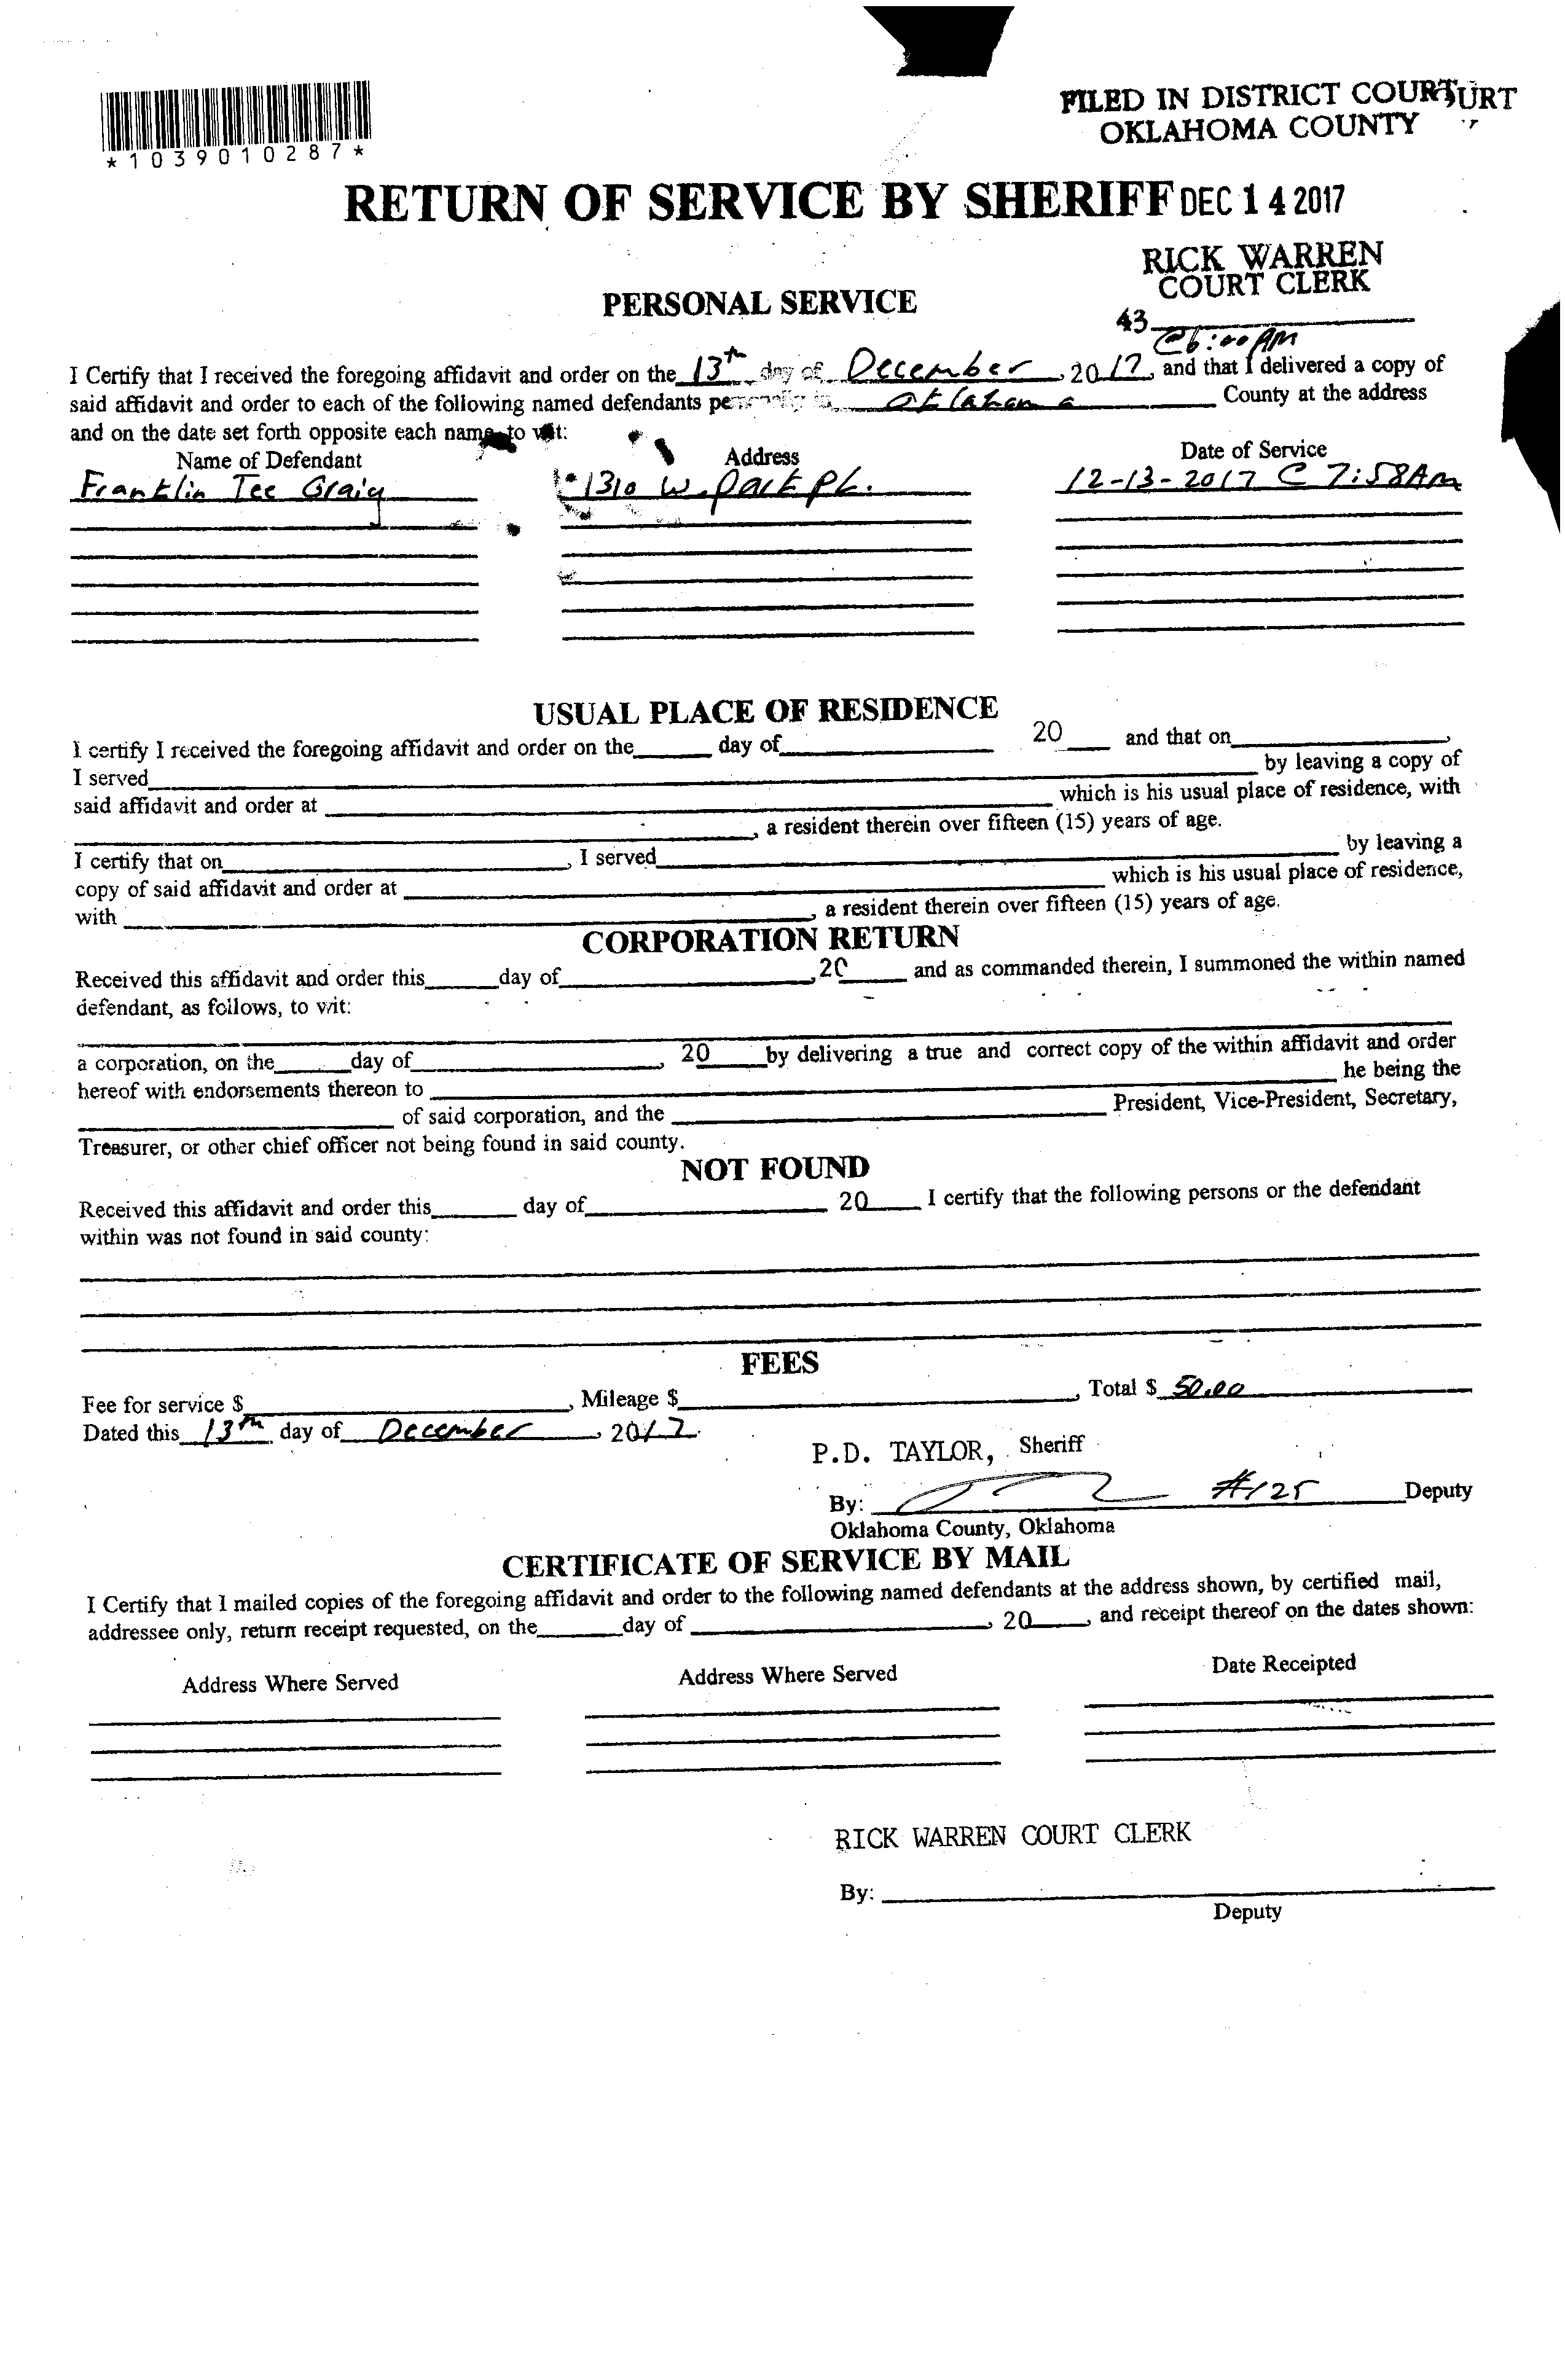 FILED IN DISTRICT COURT URT
OKLAHOMA COUNTY
*1039010287*
RETURN OF SERVICE BY SHERIFF DEC 14 2017
RICK WARREN
COURT CLERK
PERSONAL SERVICE
43
@6:00AM
I Certify that I received the foregoing affidavit and order on the 13th day of December, 2017, and that I delivered a copy of
said affidavit and order to each of the following named defendants personally in Oklahoma County at the address
and on the date set forth opposite each name to wit:
Name of Defendant Address Date of Service
Franklin Tee Graig 1310 W. Park PL. 12-13-2017 @ 7:58AM
USUAL PLACE OF RESIDENCE
I certify I received the foregoing affidavit and order on the ____ day of ____ 20 ____ and that on ____,
I served ____ by leaving a copy of
said affidavit and order at ____ which is his usual place of residence, with
____, a resident therein over fifteen (15) years of age.
I certify that on ____, I served ____ by leaving a
copy of said affidavit and order at ____ which is his usual place of residence,
with ____, a resident therein over fifteen (15) years of age.
CORPORATION RETURN
Received this affidavit and order this ____ day of ____, 20 ____ and as commanded therein, I summoned the within named
defendant, as follows, to wit:
a corporation, on the ____ day of ____, 20 ____ by delivering a true and correct copy of the within affidavit and order
hereof with endorsements thereon to ____ he being the
____ of said corporation, and the ____ President, Vice-President, Secretary,
Treasurer, or other chief officer not being found in said county.
NOT FOUND
Received this affidavit and order this ____ day of ____ 20 ____ I certify that the following persons or the defendant
within was not found in said county:
FEES
Fee for service $ ____, Mileage $ ____, Total $ 50.00
Dated this 13th day of December, 2017.
P.D. TAYLOR, Sheriff
By: ____ #125 Deputy
Oklahoma County, Oklahoma
CERTIFICATE OF SERVICE BY MAIL
I Certify that I mailed copies of the foregoing affidavit and order to the following named defendants at the address shown, by certified mail,
addressee only, return receipt requested, on the ____ day of ____, 20 ____, and receipt thereof on the dates shown:
Address Where Served Address Where Served Date Receipted
RICK WARREN COURT CLERK
By: ____
Deputy